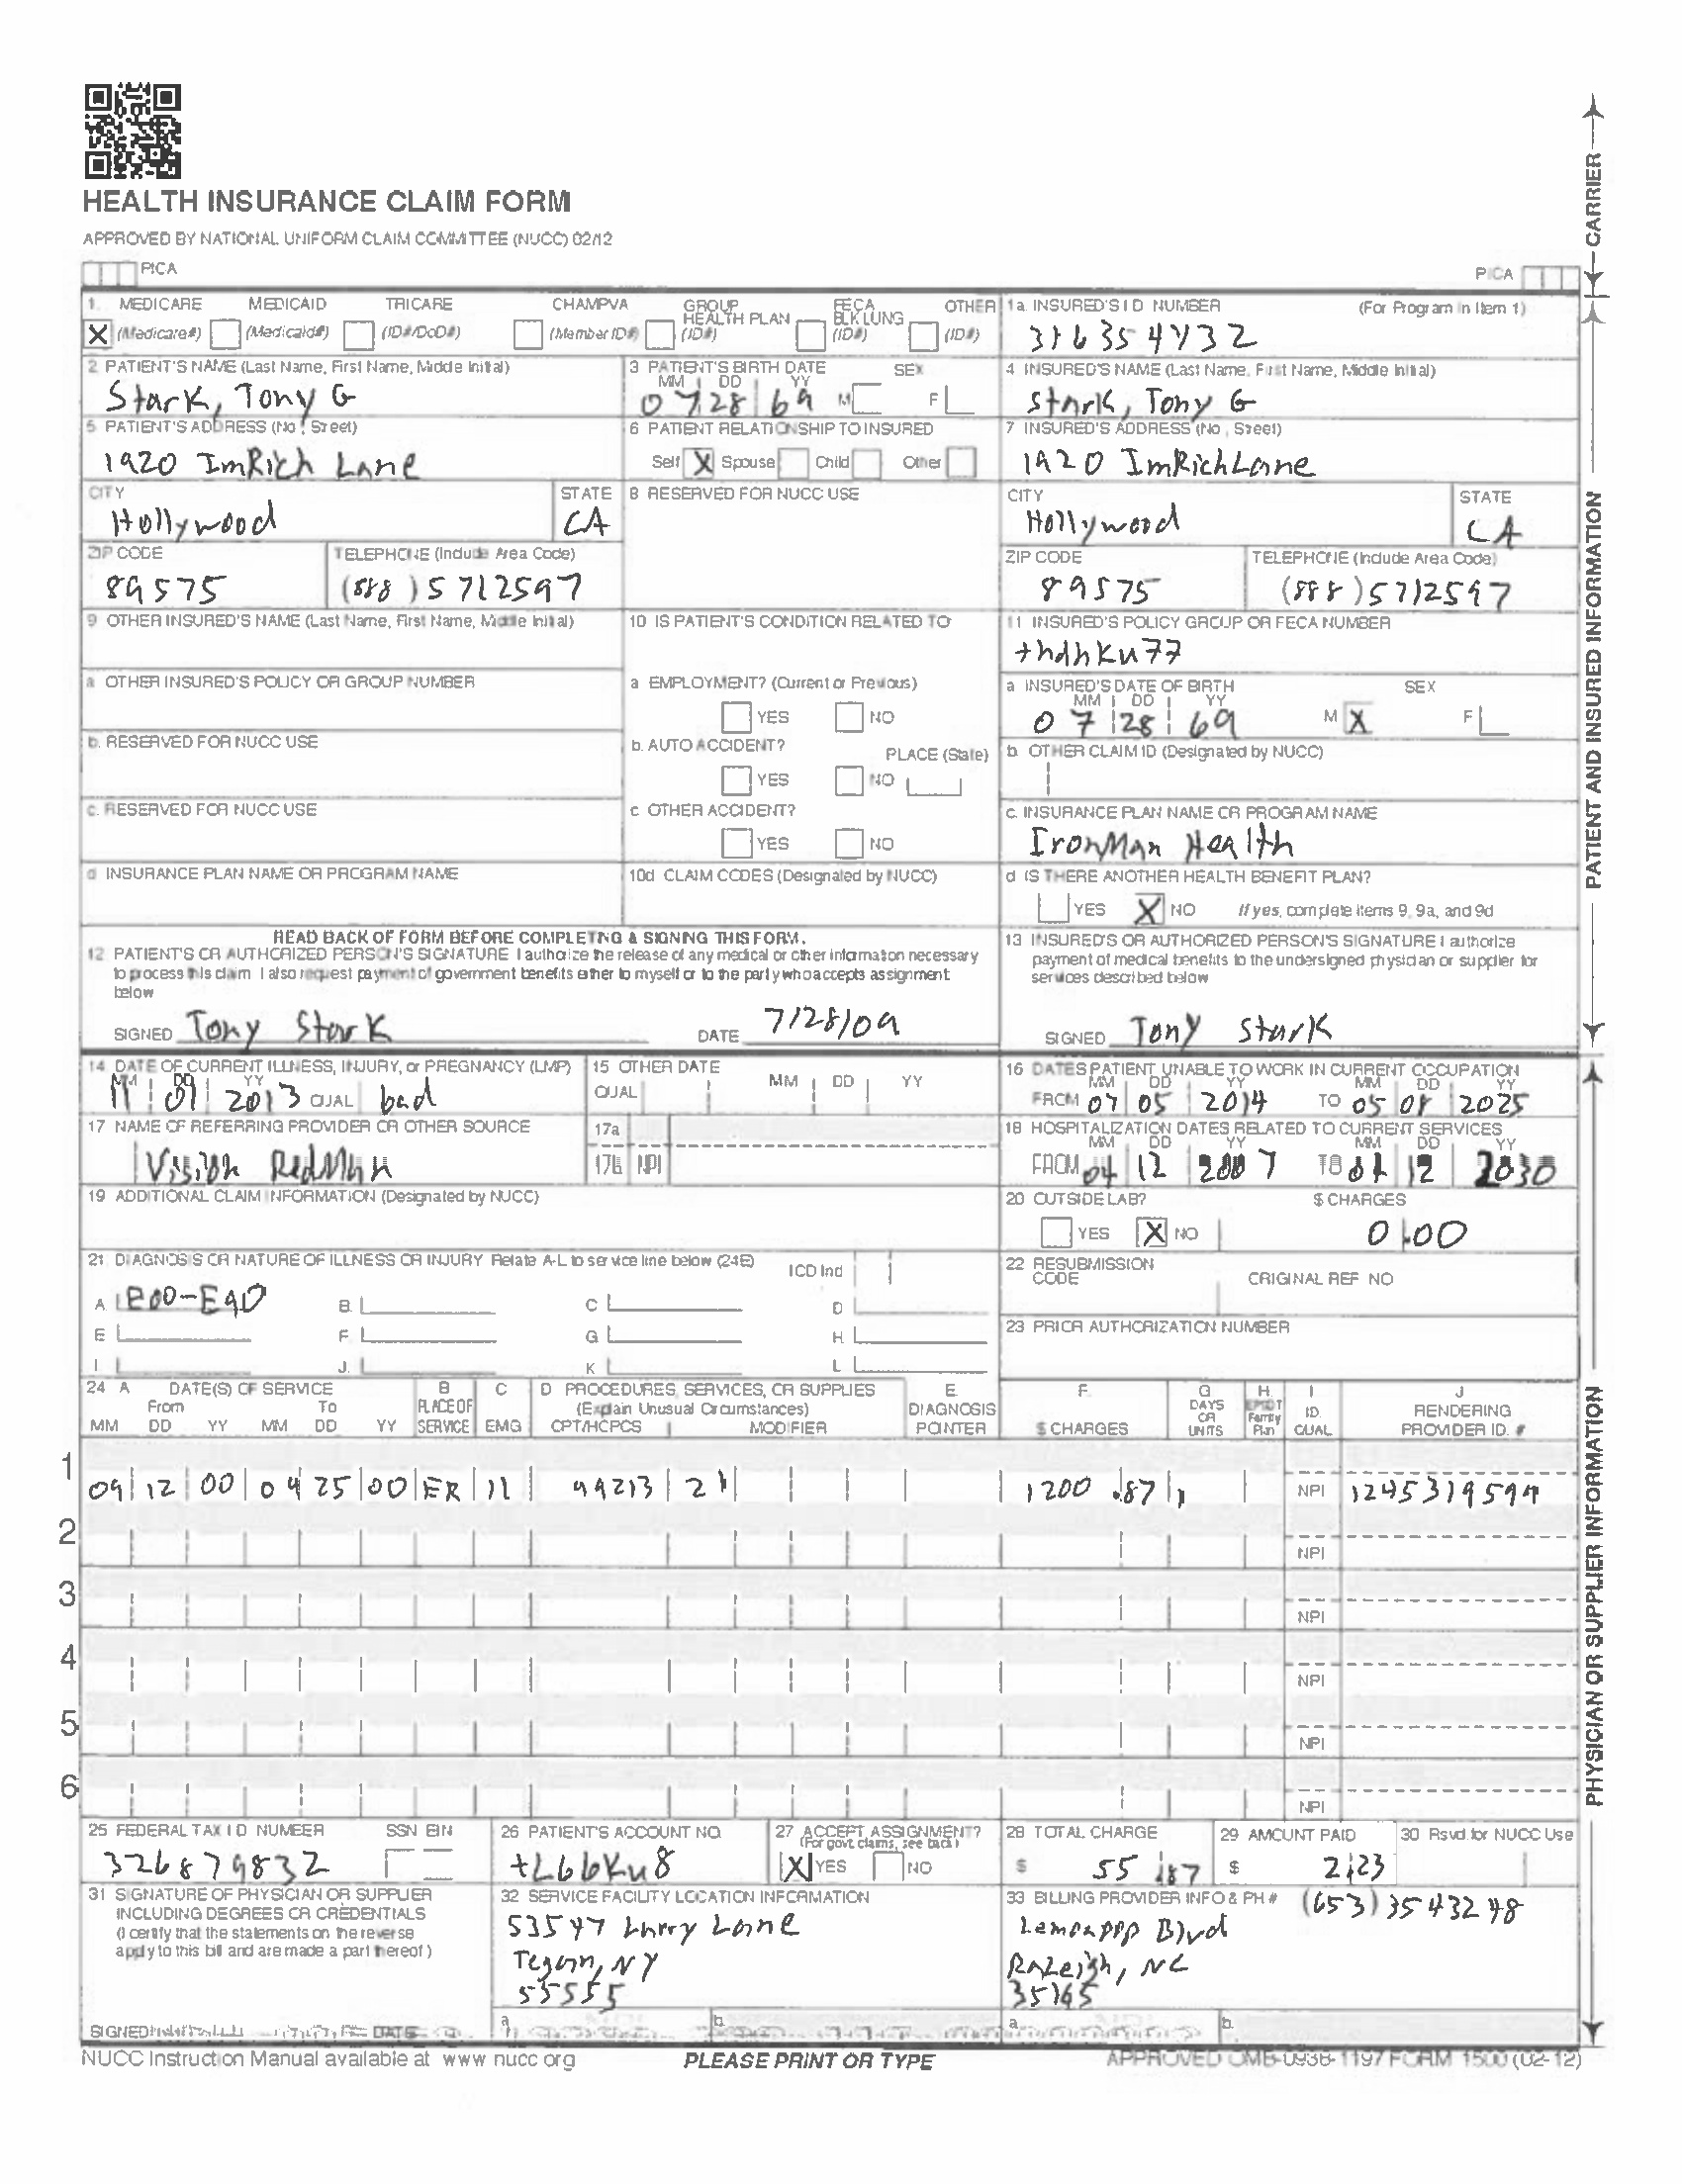 HEALTH INSURANCE CLAIM FORM
APPROVED BY NATIONAL UNIFORM CLAIM COMMITTEE (NUCC) 02/12
PICA
PICA
CARRIER
1. MEDICARE MEDICAID TRICARE CHAMPVA GROUP HEALTH PLAN FECA BLK LUNG OTHER
X (Medicare#) (Medicaid#) (ID#/DoD#) (Member ID#) (ID#) (ID#) (ID#)
1a. INSURED'S I.D. NUMBER (For Program in Item 1)
316354432
2 PATIENT'S NAME (Last Name, First Name, Middle Initial)
Stark, Tony G
3 PATIENT'S BIRTH DATE SEX
MM DD YY
07 28 69 M F
4 INSURED'S NAME (Last Name, First Name, Middle Initial)
Stark, Tony G
5 PATIENT'S ADDRESS (No., Street)
1920 ImRich Lane
6 PATIENT RELATIONSHIP TO INSURED
Self X Spouse Child Other
7 INSURED'S ADDRESS (No., Street)
1920 ImRich Lane
CITY STATE
Hollywood CA
8 RESERVED FOR NUCC USE
CITY STATE
Hollywood CA
ZIP CODE TELEPHONE (Include Area Code)
89575 (888) 5712597
ZIP CODE TELEPHONE (Include Area Code)
89575 (888) 5712597
9 OTHER INSURED'S NAME (Last Name, First Name, Middle Initial)
10 IS PATIENT'S CONDITION RELATED TO
11 INSURED'S POLICY GROUP OR FECA NUMBER
thdhku77
a OTHER INSURED'S POLICY OR GROUP NUMBER
a EMPLOYMENT? (Current or Previous)
YES NO
a INSURED'S DATE OF BIRTH SEX
MM DD YY
07 28 69 M X F
b. RESERVED FOR NUCC USE
b. AUTO ACCIDENT? PLACE (State)
YES NO
b OTHER CLAIM ID (Designated by NUCC)
c. RESERVED FOR NUCC USE
c OTHER ACCIDENT?
YES NO
c. INSURANCE PLAN NAME OR PROGRAM NAME
IronMan Health
d INSURANCE PLAN NAME OR PROGRAM NAME
10d CLAIM CODES (Designated by NUCC)
d IS THERE ANOTHER HEALTH BENEFIT PLAN?
YES X NO If yes, complete items 9, 9a, and 9d
PATIENT AND INSURED INFORMATION
READ BACK OF FORM BEFORE COMPLETING & SIGNING THIS FORM.
12 PATIENT'S OR AUTHORIZED PERSON'S SIGNATURE I authorize the release of any medical or other information necessary
to process this claim I also request payment of government benefits either to myself or to the party who accepts assignment
below
SIGNED Tony Stark DATE 7/28/09
13 INSURED'S OR AUTHORIZED PERSON'S SIGNATURE I authorize
payment of medical benefits to the undersigned physician or supplier for
services described below
SIGNED Tony Stark
14 DATE OF CURRENT ILLNESS, INJURY, or PREGNANCY (LMP)
MM DD YY
11 01 2013 QUAL bad
15 OTHER DATE
QUAL MM DD YY
16 DATES PATIENT UNABLE TO WORK IN CURRENT OCCUPATION
MM DD YY MM DD YY
FROM 07 05 2014 TO 05 08 2025
17 NAME OF REFERRING PROVIDER OR OTHER SOURCE
Vision RedMan
17a
17b NPI
18 HOSPITALIZATION DATES RELATED TO CURRENT SERVICES
MM DD YY MM DD YY
FROM 04 12 2007 TO 12 2030
19 ADDITIONAL CLAIM INFORMATION (Designated by NUCC)
20 OUTSIDE LAB? $ CHARGES
YES X NO 0.00
21 DIAGNOSIS OR NATURE OF ILLNESS OR INJURY Relate A-L to service line below (24E) ICD Ind
A E00-E90 B. C D
E F. G H
I J. K L
22 RESUBMISSION CODE ORIGINAL REF NO
23 PRIOR AUTHORIZATION NUMBER
24 A DATE(S) OF SERVICE B PLACE OF SERVICE C EMG D PROCEDURES, SERVICES, OR SUPPLIES E DIAGNOSIS POINTER F. $ CHARGES G DAYS OR UNITS H EPSDT Family Plan I ID. QUAL J RENDERING PROVIDER ID. #
From To (Explain Unusual Circumstances)
MM DD YY MM DD YY CPT/HCPCS MODIFIER
1 09 12 00 04 25 00 ER 11 99213 21 1200 .87 1 NPI 1245319594
2 NPI
3 NPI
4 NPI
5 NPI
6 NPI
PHYSICIAN OR SUPPLIER INFORMATION
25 FEDERAL TAX I D NUMBER SSN EIN
326879832
26 PATIENT'S ACCOUNT NO.
tL66Ku8
27 ACCEPT ASSIGNMENT? (For govt. claims, see back)
X YES NO
28 TOTAL CHARGE
$ 55 87
29 AMOUNT PAID
$ 2,23
30 Rsvd for NUCC Use
31 SIGNATURE OF PHYSICIAN OR SUPPLIER
INCLUDING DEGREES OR CREDENTIALS
(I certify that the statements on the reverse
apply to this bill and are made a part thereof)
SIGNED DATE
32 SERVICE FACILITY LOCATION INFORMATION
53547 Larry Lane
Tegan, NY
55555
a b.
33 BILLING PROVIDER INFO & PH # (653) 3543248
Blvd
Raleigh, NC
35165
a b.
NUCC Instruction Manual available at www nucc org
PLEASE PRINT OR TYPE
APPROVED OMB-0938-1197 FORM 1500 (02-12)